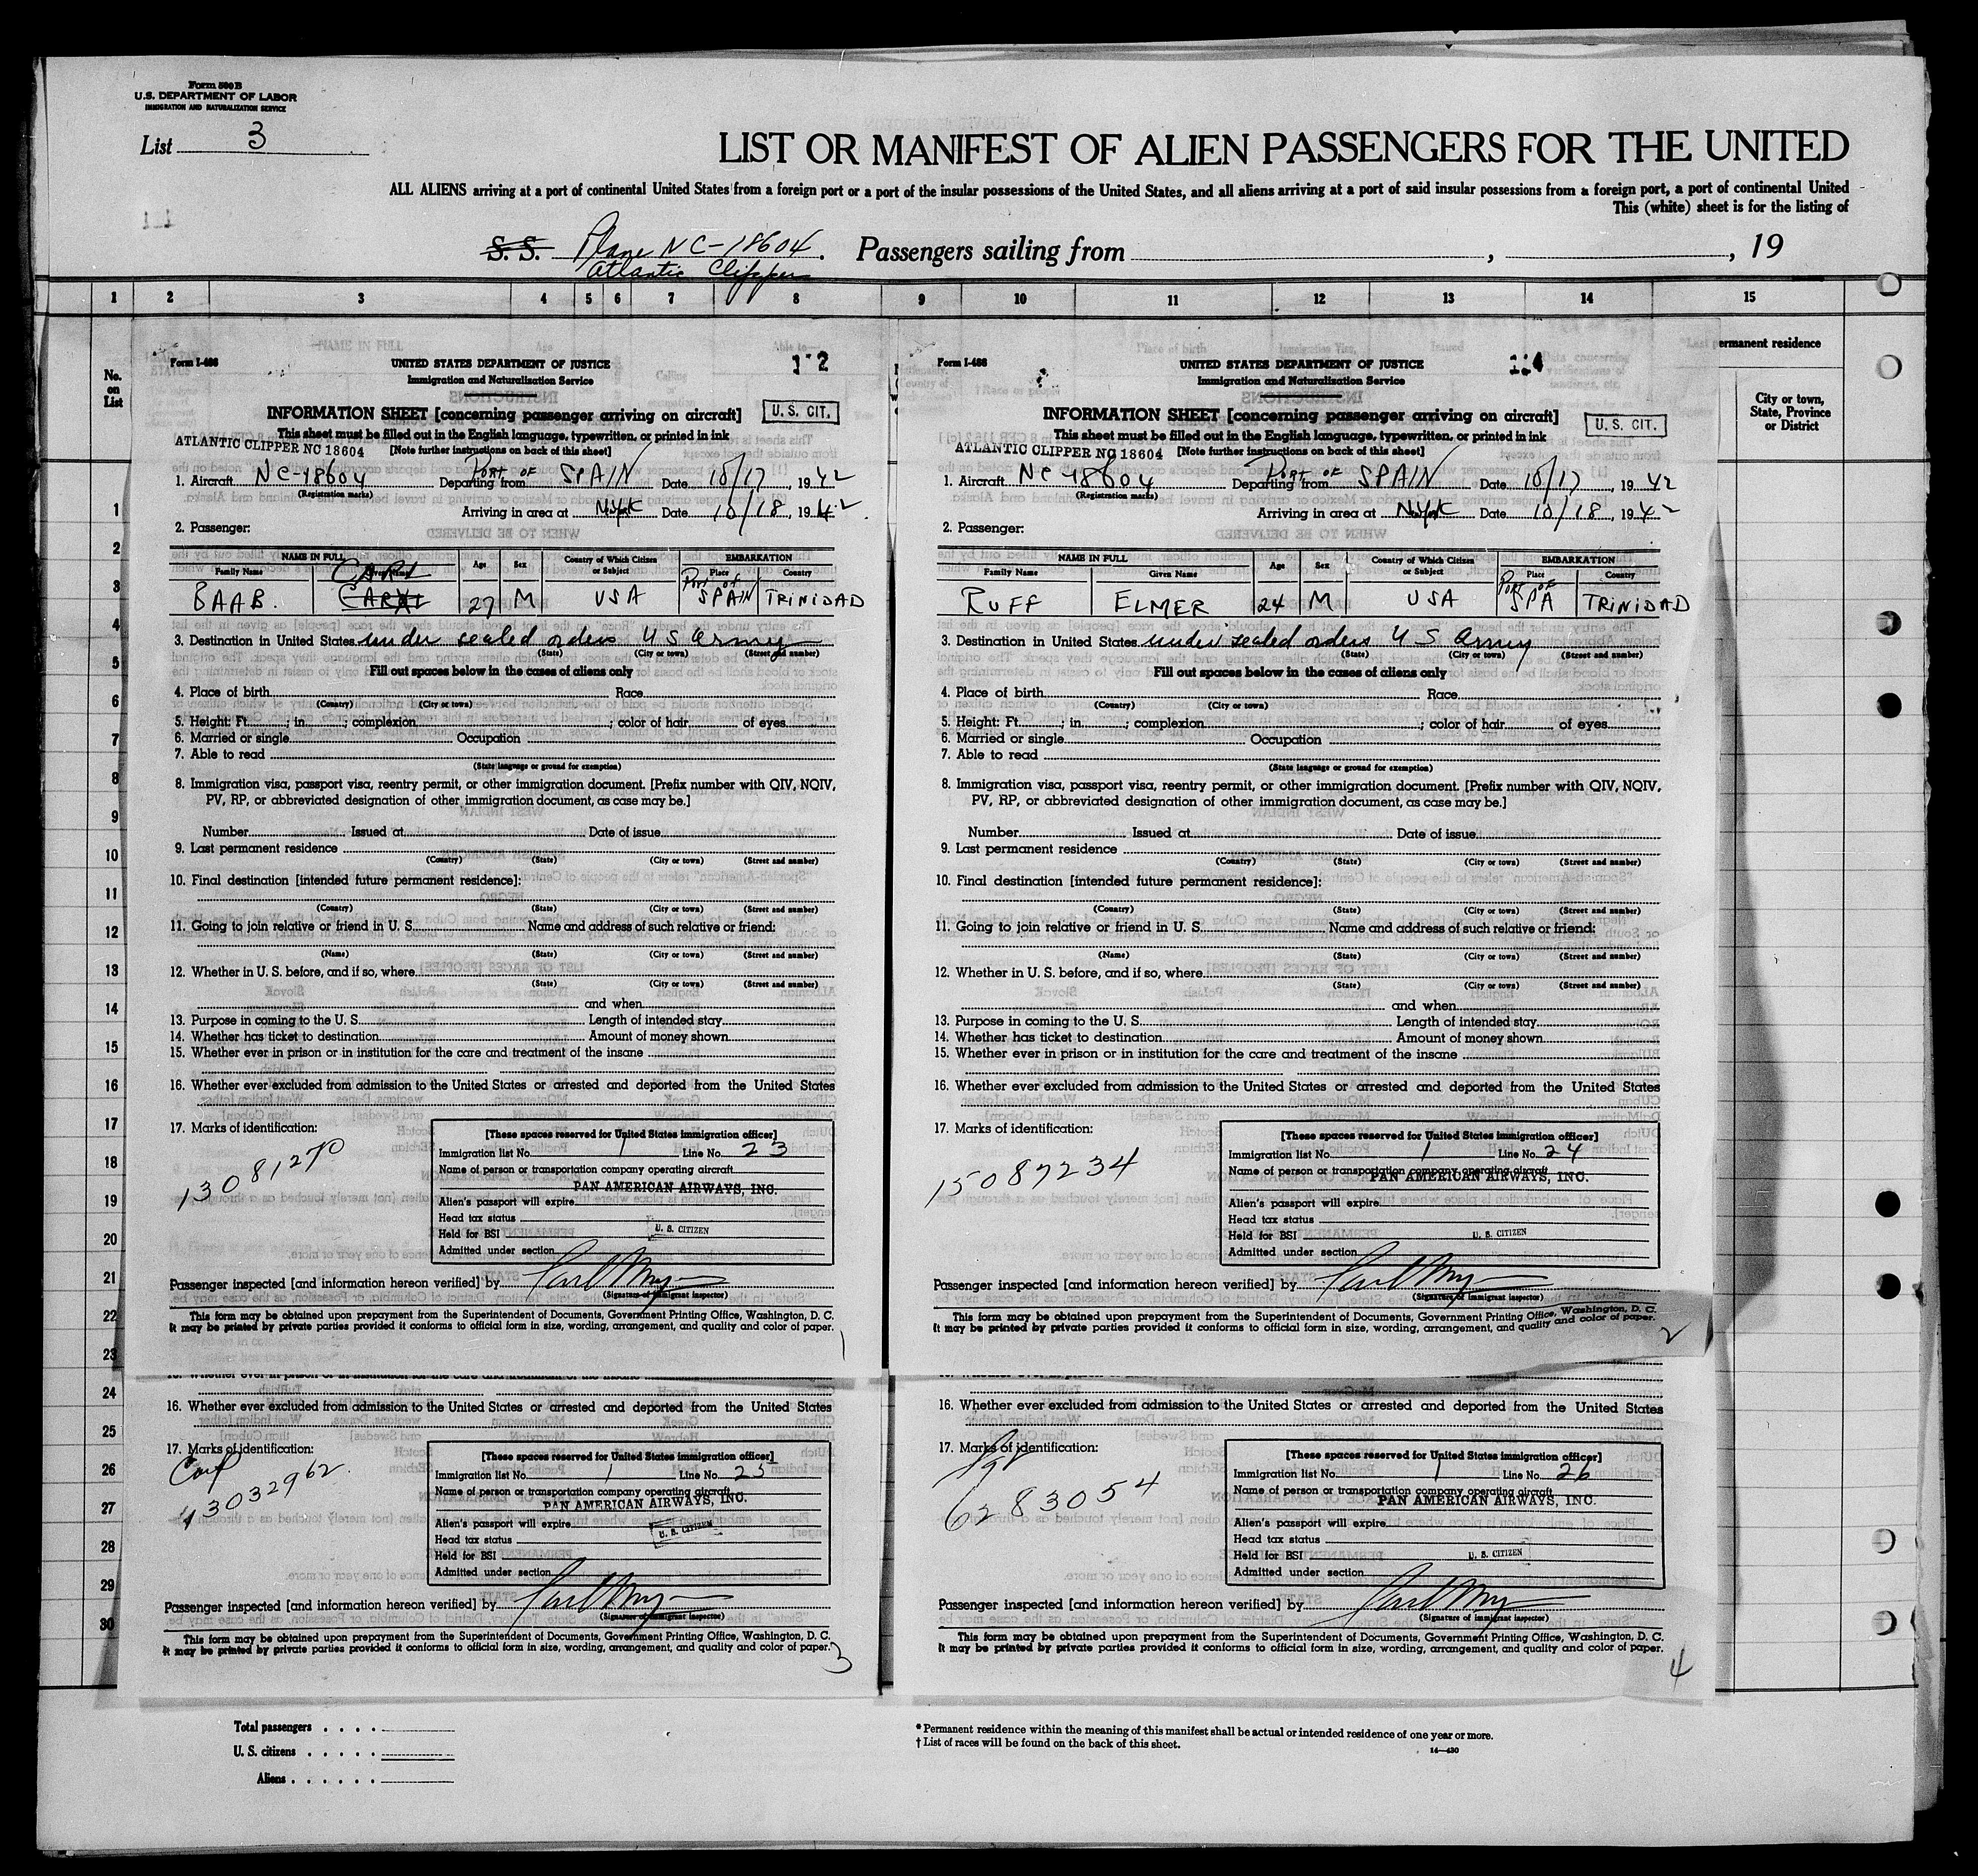 Form 500B
U.S. DEPARTMENT OF LABOR
IMMIGRATION AND NATURALIZATION SERVICE
List 3
LIST OR MANIFEST OF ALIEN PASSENGERS FOR THE UNITED
ALL ALIENS arriving at a port of continental United States from a foreign port or a port of the insular possessions of the United States, and all aliens arriving at a port of said insular possessions from a foreign port, a port of continental United
This (white) sheet is for the listing of
S. S. Plane NC-18604. Passengers sailing from , , 19
Atlantic Clipper
1 2 3 4 5 6 7 8 9 10 11 12 13 14 15
No. on List
permanent residence
City or town, State, Province or District
1
2
3
4
5
6
7
8
9
10
11
12
13
14
15
16
17
18
19
20
21
22
23
24
25
26
27
28
29
30
Form I-466
UNITED STATES DEPARTMENT OF JUSTICE
Immigration and Naturalization Service
INFORMATION SHEET [concerning passenger arriving on aircraft]
U. S. CIT.
This sheet must be filled out in the English language, typewritten, or printed in ink
ATLANTIC CLIPPER NC 18604 [Note further instructions on back of this sheet]
1. Aircraft NC-18604 Departing from PORT OF SPAIN Date 10/17, 1942
(Registration marks)
Arriving in area at N York Date 10/18, 1942
2. Passenger:
NAME IN FULL Age Sex Country of Which Citizen or Subject EMBARKATION
Family Name Given Name Place Country
BAAB. CARL 27 M USA Port of SPAIN TRINIDAD
3. Destination in United States under sealed orders U S Army
(State) (City or town) (Street and number)
Fill out spaces below in the cases of aliens only
4. Place of birth Race
(Country) (City or town)
5. Height: Ft. ; in. ; complexion ; color of hair of eyes
6. Married or single Occupation
7. Able to read
(State language or ground for exemption)
8. Immigration visa, passport visa, reentry permit, or other immigration document. [Prefix number with QIV, NQIV,
PV, RP, or abbreviated designation of other immigration document, as case may be.]
Number Issued at Date of issue
9. Last permanent residence
(Country) (State) (City or town) (Street and number)
10. Final destination [intended future permanent residence]:
(Country) (State) (City or town) (Street and number)
11. Going to join relative or friend in U. S. Name and address of such relative or friend:
(Name) (State) (City or town) (Street and number)
12. Whether in U. S. before, and if so, where
(State) (City or town) (Street and number)
and when
13. Purpose in coming to the U. S. Length of intended stay
14. Whether has ticket to destination Amount of money shown
15. Whether ever in prison or in institution for the care and treatment of the insane
16. Whether ever excluded from admission to the United States or arrested and deported from the United States
17. Marks of identification:
13081270
[These spaces reserved for United States immigration officer]
Immigration list No. 1 Line No. 23
Name of person or transportation company operating aircraft
PAN AMERICAN AIRWAYS, INC.
Alien's passport will expire
Head tax status
Held for BSI U. S. CITIZEN
Admitted under section
Passenger inspected [and information hereon verified] by
(Signature of immigrant inspector)
This form may be obtained upon prepayment from the Superintendent of Documents, Government Printing Office, Washington, D. C.
It may be printed by private parties provided it conforms to official form in size, wording, arrangement, and quality and color of paper.
1
Form I-466
UNITED STATES DEPARTMENT OF JUSTICE
Immigration and Naturalization Service
INFORMATION SHEET [concerning passenger arriving on aircraft]
U. S. CIT.
This sheet must be filled out in the English language, typewritten, or printed in ink
ATLANTIC CLIPPER NC 18604 [Note further instructions on back of this sheet]
1. Aircraft NC-18604 Departing from Port of SPAIN Date 10/17, 1942
(Registration marks)
Arriving in area at N York Date 10/18, 1942
2. Passenger:
NAME IN FULL Age Sex Country of Which Citizen or Subject EMBARKATION
Family Name Given Name Place Country
RUFF ELMER 24 M USA Port of SPA TRINIDAD
3. Destination in United States under sealed orders U S Army
(State) (City or town) (Street and number)
Fill out spaces below in the cases of aliens only
4. Place of birth Race
(Country) (City or town)
5. Height: Ft. ; in. ; complexion ; color of hair of eyes
6. Married or single Occupation
7. Able to read
(State language or ground for exemption)
8. Immigration visa, passport visa, reentry permit, or other immigration document. [Prefix number with QIV, NQIV,
PV, RP, or abbreviated designation of other immigration document, as case may be.]
Number Issued at Date of issue
9. Last permanent residence
(Country) (State) (City or town) (Street and number)
10. Final destination [intended future permanent residence]:
(Country) (State) (City or town) (Street and number)
11. Going to join relative or friend in U. S. Name and address of such relative or friend:
(Name) (State) (City or town) (Street and number)
12. Whether in U. S. before, and if so, where
(State) (City or town) (Street and number)
and when
13. Purpose in coming to the U. S. Length of intended stay
14. Whether has ticket to destination Amount of money shown
15. Whether ever in prison or in institution for the care and treatment of the insane
16. Whether ever excluded from admission to the United States or arrested and deported from the United States
17. Marks of identification:
15087234
[These spaces reserved for United States immigration officer]
Immigration list No. 1 Line No. 24
Name of person or transportation company operating aircraft
PAN AMERICAN AIRWAYS, INC.
Alien's passport will expire
Head tax status
Held for BSI U. S. CITIZEN
Admitted under section
Passenger inspected [and information hereon verified] by
(Signature of immigrant inspector)
This form may be obtained upon prepayment from the Superintendent of Documents, Government Printing Office, Washington, D. C.
It may be printed by private parties provided it conforms to official form in size, wording, arrangement, and quality and color of paper.
2
16. Whether ever excluded from admission to the United States or arrested and deported from the United States
17. Marks of identification:
13032962
[These spaces reserved for United States immigration officer]
Immigration list No. 1 Line No. 25
Name of person or transportation company operating aircraft
PAN AMERICAN AIRWAYS, INC.
Alien's passport will expire
U. S. CITIZEN
Head tax status
Held for BSI
Admitted under section
Passenger inspected [and information hereon verified] by
(Signature of immigrant inspector)
This form may be obtained upon prepayment from the Superintendent of Documents, Government Printing Office, Washington, D. C.
It may be printed by private parties provided it conforms to official form in size, wording, arrangement, and quality and color of paper.
3
16. Whether ever excluded from admission to the United States or arrested and deported from the United States
17. Marks of identification:
6283054
[These spaces reserved for United States immigration officer]
Immigration list No. 1 Line No. 26
Name of person or transportation company operating aircraft
PAN AMERICAN AIRWAYS, INC.
Alien's passport will expire
Head tax status
Held for BSI U. S. CITIZEN
Admitted under section
Passenger inspected [and information hereon verified] by
(Signature of immigrant inspector)
This form may be obtained upon prepayment from the Superintendent of Documents, Government Printing Office, Washington, D. C.
It may be printed by private parties provided it conforms to official form in size, wording, arrangement, and quality and color of paper.
4
Total passengers . . . .
U. S. citizens . . . . .
Aliens . . . . . .
* Permanent residence within the meaning of this manifest shall be actual or intended residence of one year or more.
† List of races will be found on the back of this sheet.
14—430